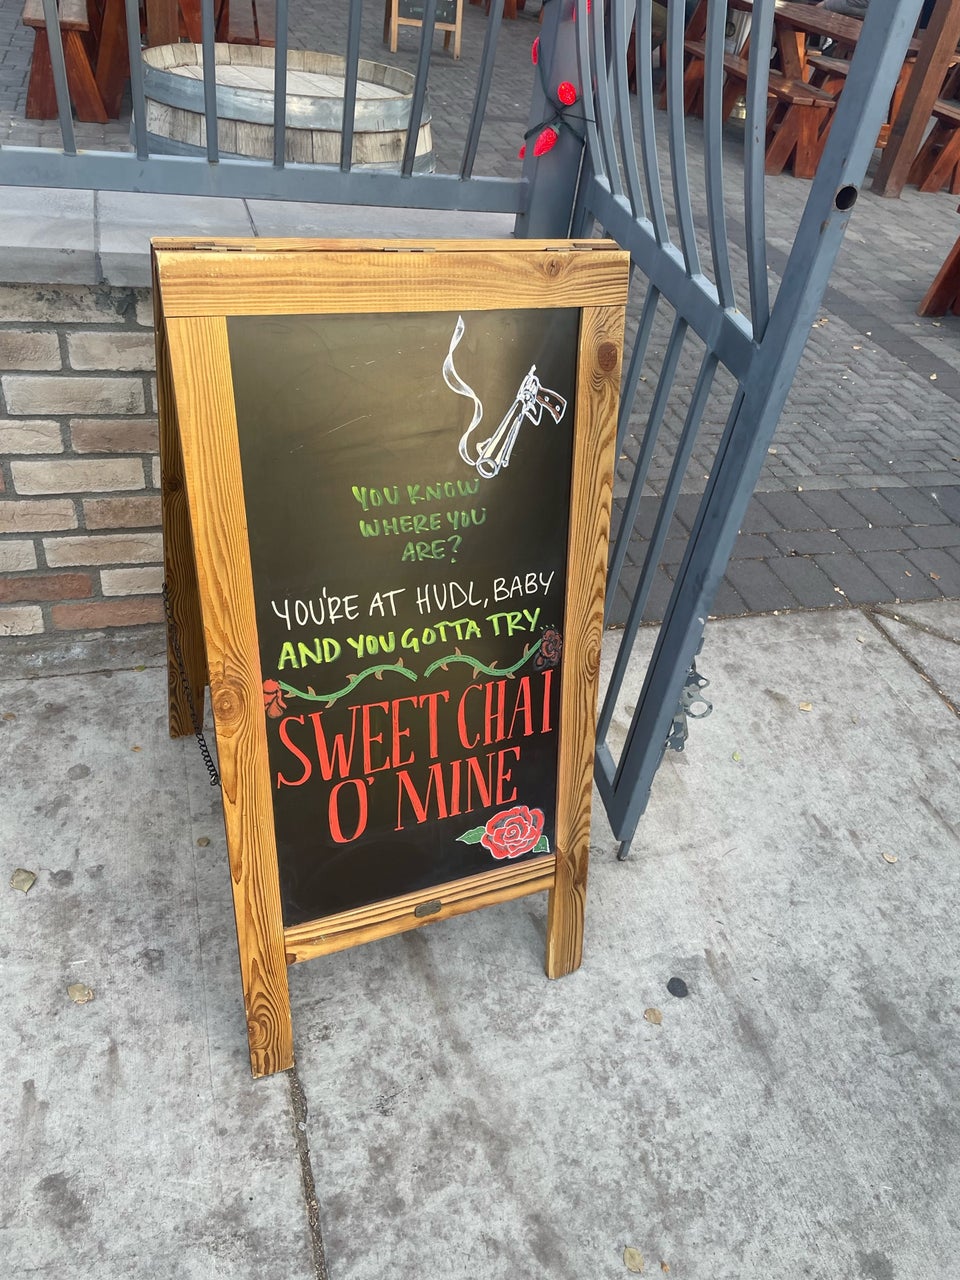 YOU KNOW
WHERE YOU
ARE?
YOU'RE AT HUDL, BABY
AND YOU GOTTA TRY...
SWEET CHAI
O' MINE